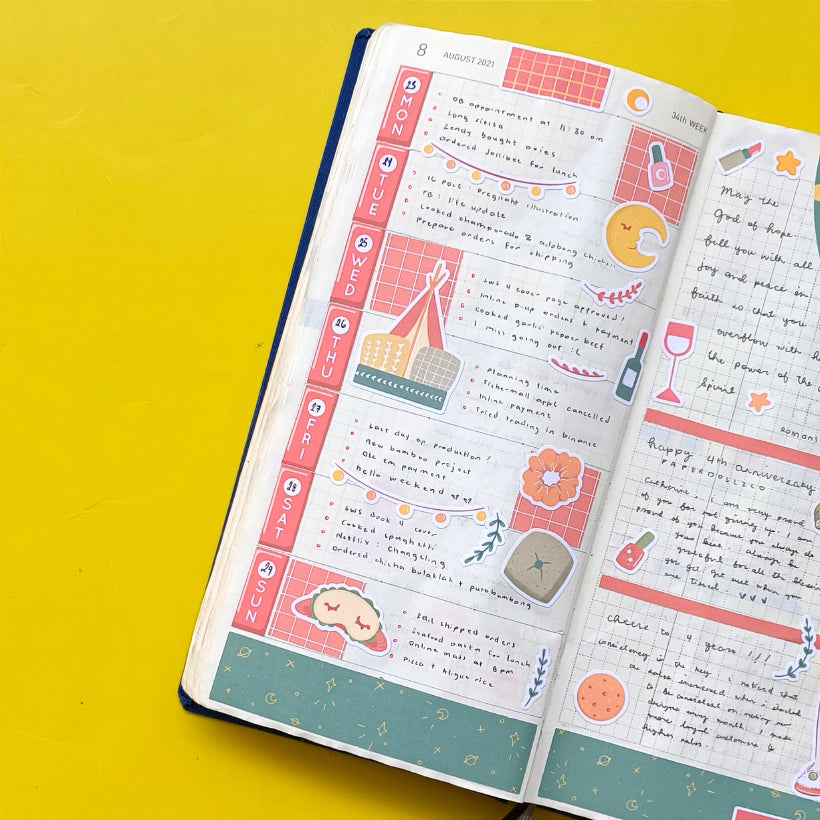 8
AUGUST 2021
34th WEEK
23
MON
OB appointment at 11:30 am
Long siesta
Zendy bought oxies
Ordered Jollibee for lunch
24
TUE
IG post: Pregnant illustration
FB: life update
Cooked champorado & adobong chic...
Prepare orders for shipping
25
WED
SWS 4 cover page approved!
Inline pick-up orders & payment
Cooked garlic pepper beef
I miss going out :(
26
THU
Planning time
Richer-mall appt cancelled
Inline payment
Tried trading in binance
27
FRI
Last day of production!
New bamboo project
payment
hello weekend
28
SAT
SWS Book 4 cover
Cooked spaghetti
Netflix: Changeling
Ordered chicha bulaklak & purobumbong
29
SUN
Edit chipped orders
Seafood pasta for lunch
Online mass at 8pm
Pizza & aligue rice
May the
God of hope
fill you with all
joy and peace
faith so that you
overflow with
the power of the
Spirit
ROMANS
happy 4th anniversary
PAPERDOLLZCO
Catherine, I am very proud
of you for not giving up. I am
proud of you because you always do
your best. Always be
grateful for all the blessings
you get. Rest when you
are tired.
Cheers to 4 years!!!
Consistency is the key. I noticed that
my sales increased when I started
to be consistent on making
designs every month. I made
more loyal customers &
higher sales.